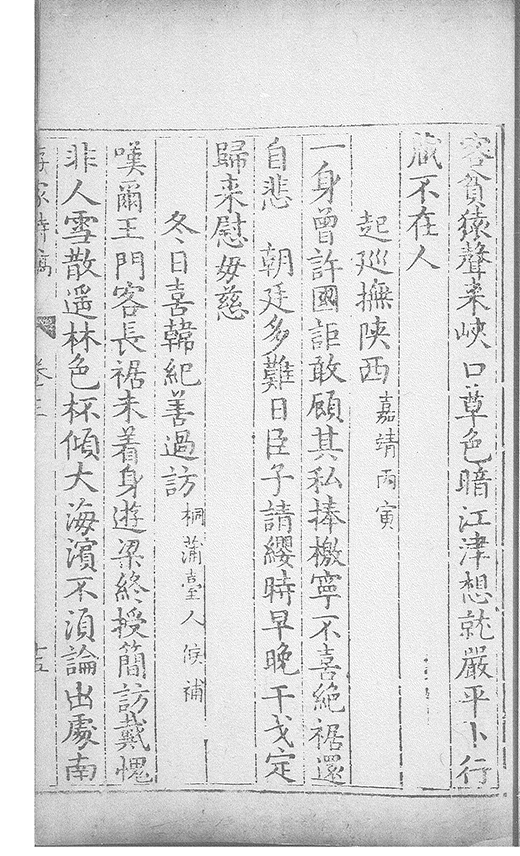 客貧猿聲来峽口草色暗江津想就嚴平卜行
藏不在人
起巡撫陕西嘉靖丙寅
一身曾許國詎敢顧其私捧檄寧不喜絶裾還
自悲　朝廷多難日臣子請纓時早晚干戈定
歸来慰毋慈
冬日喜韓紀善過訪桐蒲臺人候補
嘆爾王門客長裾未着身遊梁終授簡訪戴愧
非人雪散遥林色杯傾大海濵不湏論出處南
家詩
卷